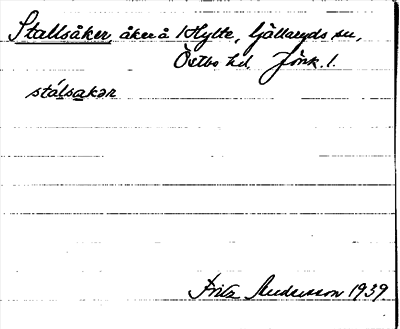 Stallsåker, åker å Hylte, Gällaryds sn,
Östbo hd. Jönk. l.
stálsakər
Fritz Andersson 1939